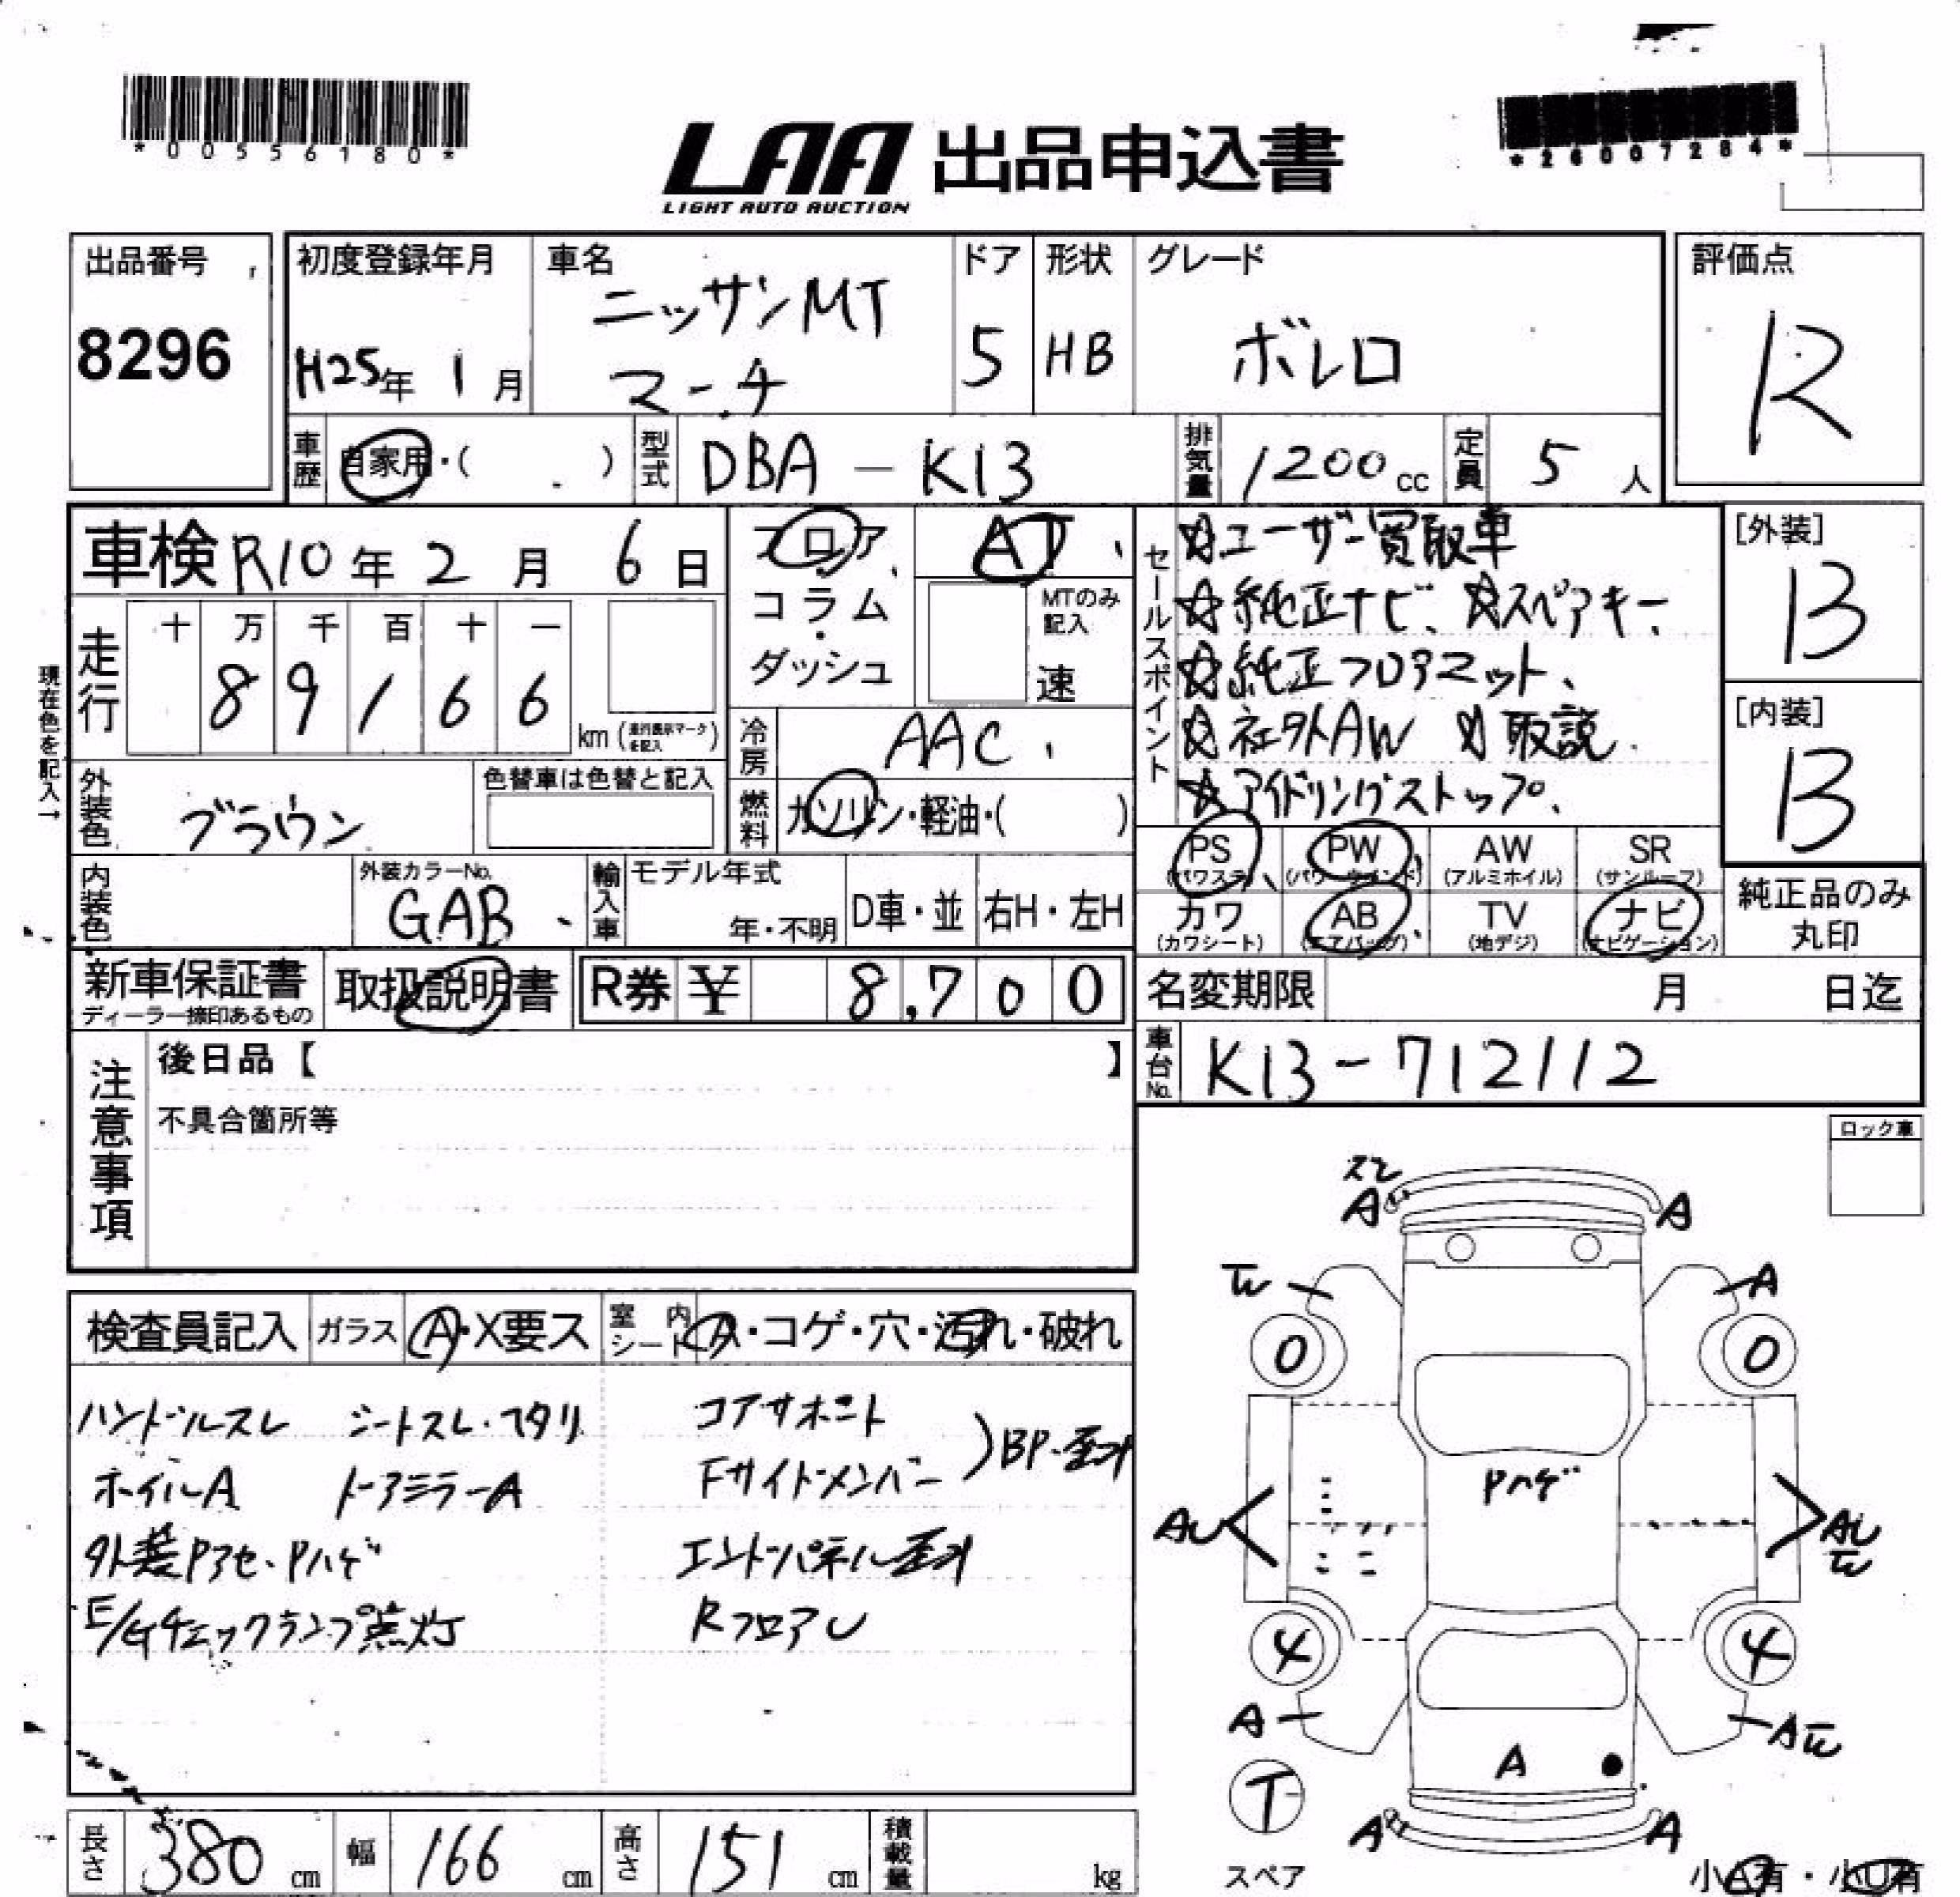 *00556180*
LAA 出品申込書
LIGHT AUTO AUCTION
*26007284*
出品番号
8296
初度登録年月
H25年 1月
車名
ニッサンMT
マーチ
ドア
5
形状
HB
グレード
ボレロ
評価点
R
車歴
自家用・( )
型式
DBA-K13
排気量
1200cc
定員
5人
車検 R10年 2月 6日
走行
十 万 千 百 十 一
8 9 1 6 6
km (走行表示マークを記入)
現在色を記入→
フロア
・
コラム
・
ダッシュ
AT
MTのみ
記入
速
冷房
AAC
燃料
ガソリン・軽油・( )
外装色
ブラウン
色替車は色替と記入
内装色
外装カラーNo.
GAB
輸入車
モデル年式
年・不明
D車・並
右H・左H
セールスポイント
☆ユーザー買取車
☆純正ナビ、☆スペアキー、
☆純正フロアマット、
☆社外AW ☆取説
☆アイドリングストップ、
[外装]
B
[内装]
B
PS
(パワステ)
PW
(パワーウインド)
AW
(アルミホイル)
SR
(サンルーフ)
カワ
(カワシート)
AB
(エアバッグ)
TV
(地デジ)
ナビ
(ナビゲーション)
純正品のみ
丸印
新車保証書
ディーラー捺印あるもの
取扱説明書
R券 ¥ 8,700
名変期限 月 日迄
車台No.
K13-712112
注意事項
後日品【 】
不具合箇所等
ロック車
検査員記入
ガラス
A・X要ス
室内シート
ス・コゲ・穴・汚れ・破れ
ハンドルスレ シートスレ・ヘタリ
ホイルA ドアミラーA
外装Pアセ、Pハゲ
E/Gチェックランプ点灯
コアサポート
Fサイドメンバー
)BP・歪み
エンドパネル歪み
RフロアU
スレ
A
A
W
A
0
0
Pハゲ
AU
AU
W
4
4
A
AW
A
T
A
A
スペア
小A有・小U有
長さ
380 cm
幅
166 cm
高さ
151 cm
積載量
kg